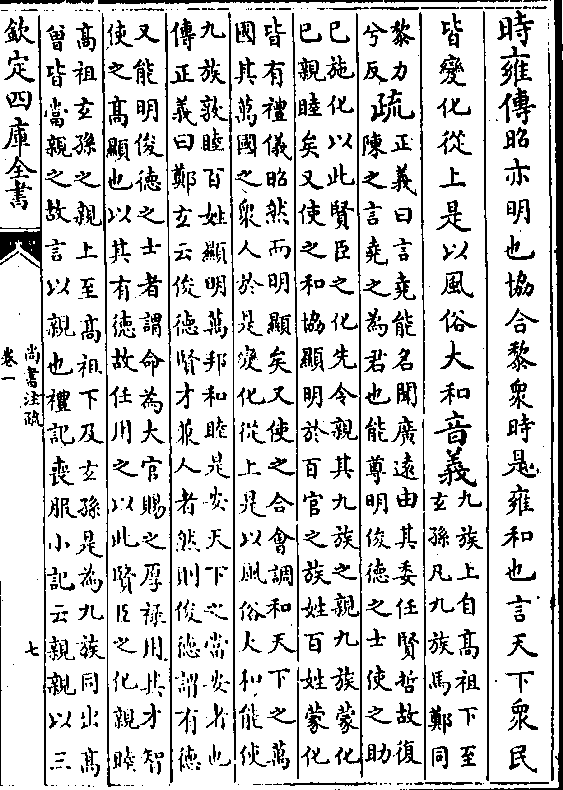 時雍傳昭亦明也協合黎衆時是雍和也言天下衆民
皆變化從上是以風俗大和音義
九族上自高祖下至
玄孫凡九族馬鄭同
黎力
兮反
疏
正義曰言堯能名聞廣遠由其委任賢哲故復
陳之言堯之為君也能尊明俊德之士使之助
已施化以此賢臣之化先令親其九族之親九族蒙化
已親睦矣又使之和協顯明於百官之族姓百姓蒙化
皆有禮儀昭然而明顯矣又使之合會調和天下之萬
國其萬國之衆人於是變化從上是以風俗大和能使
九族敦睦百姓顯明萬邦和睦是安天下之當安者也
傳正義曰鄭玄云俊德賢才兼人者然則俊德謂有德
又能明俊德之士者謂命為大官賜之厚祿用其才智
使之高顯也以其有德故任用之以此賢臣之化親睦
高祖玄孫之親上至高祖下及玄孫是為九族同出高
曾皆當親之故言以親也禮記喪服小記云親親以三
欽定四庫全書
尚書注疏
卷一
七